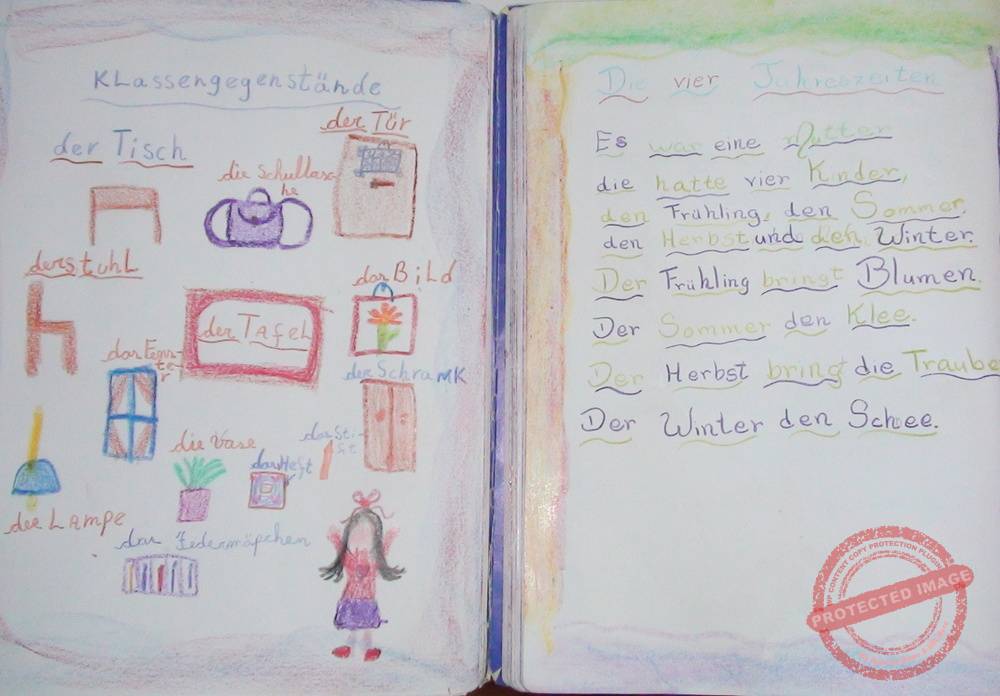 Klassengegenstände
der Tisch
der Tür
die Schultasc-
he
der Stuhl
das Bild
der Tafel
das Fens-
te
r
der Schramk
die Vase
das Heft
das Sti-
ft
der Lampe
das Federmäpchen
Die vier Jahreszeiten
Es war eine Mutter
die hatte vier Kinder,
den Frühling, den Sommer,
den Herbst und den Winter.
Der Frühling bringt Blumen.
Der Sommer den Klee.
Der Herbst bringt die Traube
Der Winter den Schee.
PROTECTED IMAGE
WP CONTENT COPY PROTECTION PLUGIN